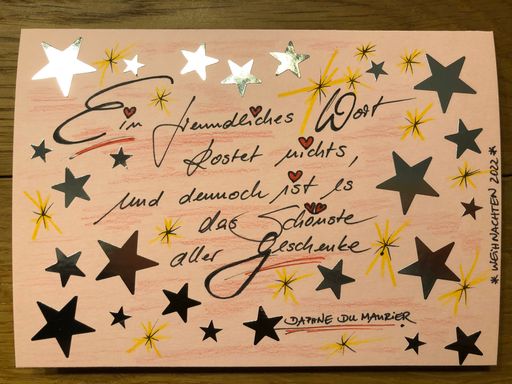 Ein freundliches Wort
kostet nichts,
und dennoch ist es
das Schönste
aller Geschenke
DAPHNE DU MAURIER
* WEIHNACHTEN 2022 *